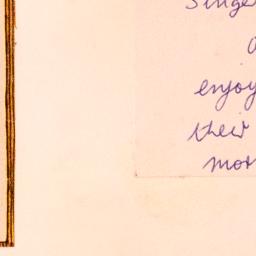 Singe
enjoy
their
mor